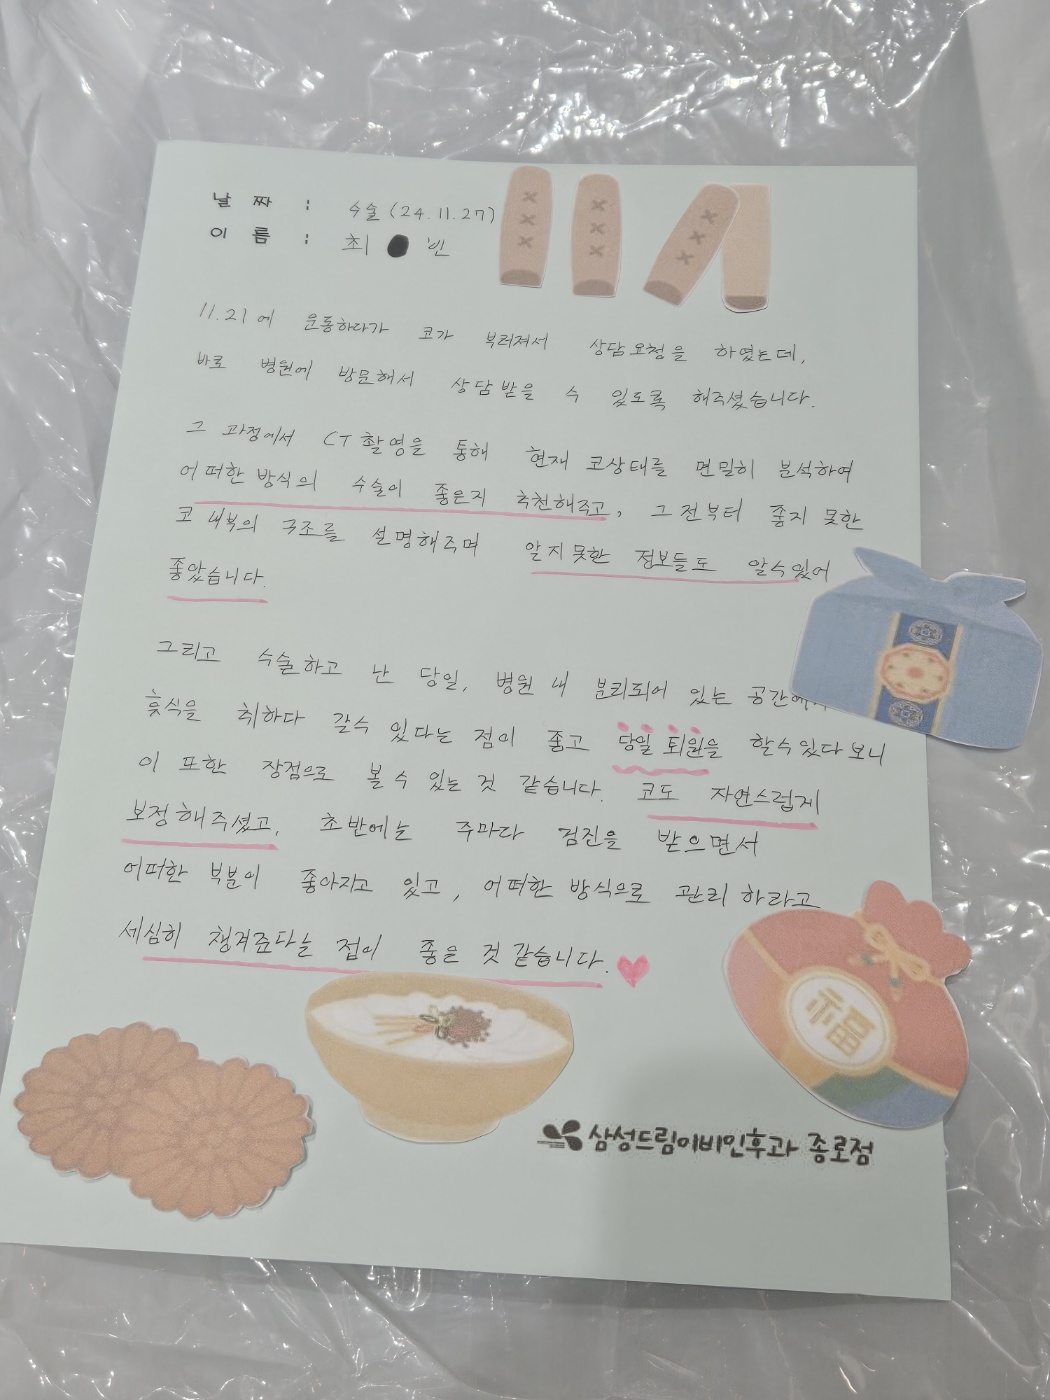 날 짜 : 수술 (24.11.27)
이 름 : 최 빈
11.21에 운동하다가 코가 부러져서 상담요청을 하였는데,
바로 병원에 방문해서 상담받을 수 있도록 해주셨습니다.
그 과정에서 CT촬영을 통해 현재 코상태를 면밀히 분석하여
어떠한 방식의 수술이 좋은지 추천해주고, 그전부터 좋지 못한
코 내부의 구조를 설명해주며 알지못한 정보들도 알수있어
좋았습니다.
그리고 수술하고 난 당일, 병원 내 분리되어 있는 공간에서
휴식을 취하다 갈수 있다는 점이 좋고 당일 퇴원을 할수있다보니
이 또한 장점으로 볼 수 있는 것 같습니다. 코도 자연스럽게
보정해주셨고, 초반에는 주마다 검진을 받으면서
어떠한 부분이 좋아지고 있고, 어떠한 방식으로 관리하라고
세심히 챙겨준다는 점이 좋을 것 같습니다.
福
삼성드림이비인후과 종로점